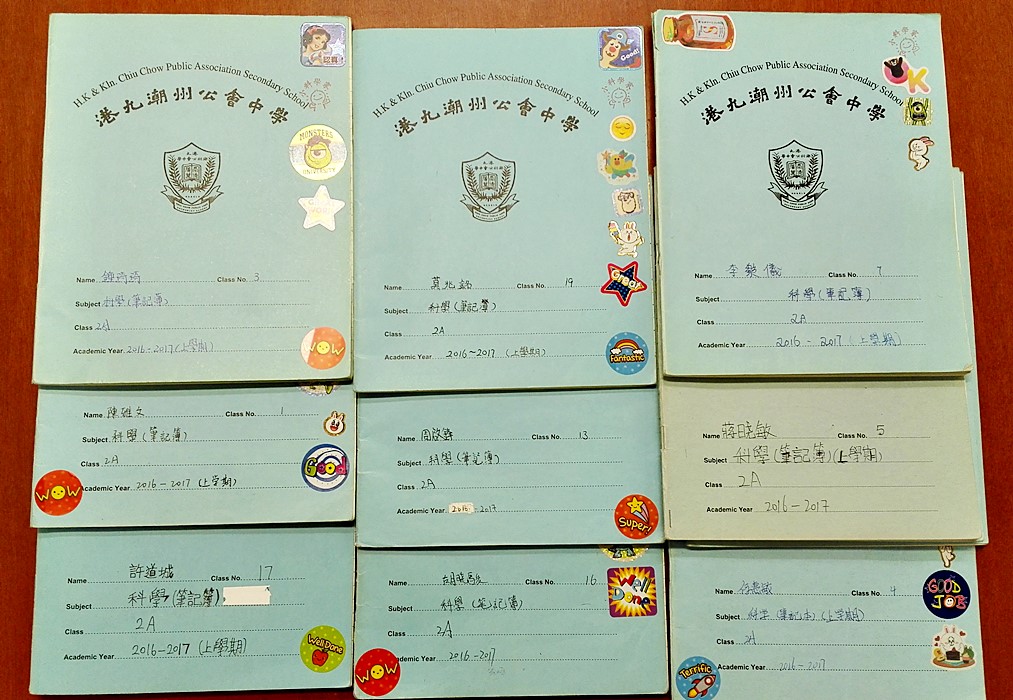 H.K & Kln. Chiu Chow Public Association Secondary School
港九潮州公會中學
Name
Class No. 3
Subject 科學(筆記簿)
Class 2A
Academic Year 2016-2017 (上學期)
認真
小科學家
MONSTERS
UNIVERSITY
WOW
H.K & Kln. Chiu Chow Public Association Secondary School
港九潮州公會中學
Name 莫兆錦
Class No. 19
Subject 科學(筆記簿)
Class 2A
Academic Year 2016~2017 (上學期)
Good!
小科學家
Good!
Fantastic
H.K & Kln. Chiu Chow Public Association Secondary School
港九潮州公會中學
Name 李 儀
Class No. 7
Subject 科學(筆記簿)
Class 2A
Academic Year 2016 - 2017 (上學期)
小科學家
OK
Name 陳雅文
Class No. 1
Subject 科學(筆記簿)
Class 2A
Academic Year 2016-2017 (上学期)
WOW
Good
Name 周
Class No. 13
Subject 科學(筆記簿)
Class 2A
Academic Year 2016-2017
Super!
Name 蔣曉敏
Class No. 5
Subject 科學(筆記簿)(上學期)
Class 2A
Academic Year 2016-2017
Name 許道城
Class No. 17
Subject 科學(筆記簿)
Class 2A
Academic Year 2016-2017 (上學期)
Well Done
Name 胡曉
Class No. 16
Subject 科學(笔記簿)
Class 2A
Academic Year 2016-2017
Well Done
WOW
Name
Class No. 4
Subject 科学(筆記本)(上學期)
Class 2A
Academic Year 2016-2017
GOOD JOB
Terrific